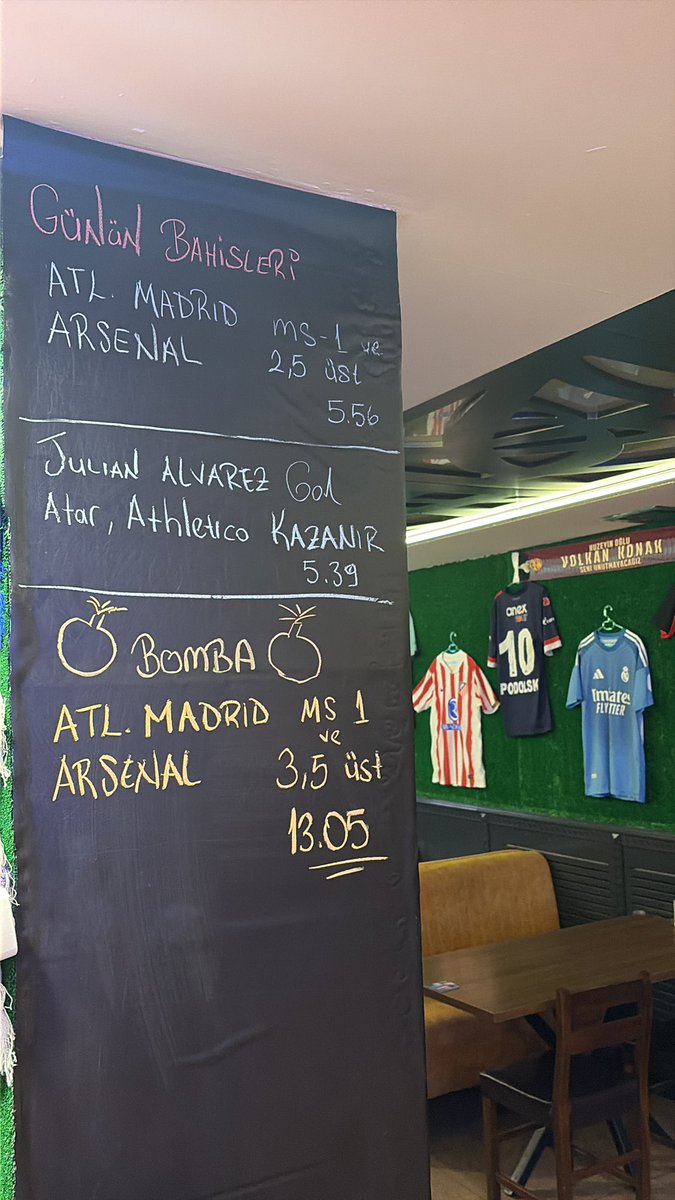 GÜNÜN BAHİSLERİ
ATL. MADRID
ARSENAL
MS-1 ve
2,5 üst
5.56
JULIAN ALVAREZ Gol
Atar, Athletico KAZANIR
5.39
BOMBA
ATL. MADRID MS 1
ve
ARSENAL 3,5 üst
13.05
HUZEYIN OĞLU
VOLKAN KONAK
SENİ UNUTMAYACAĞIZ
anex
10
PODOLSK
Emirates
FLY BETTER